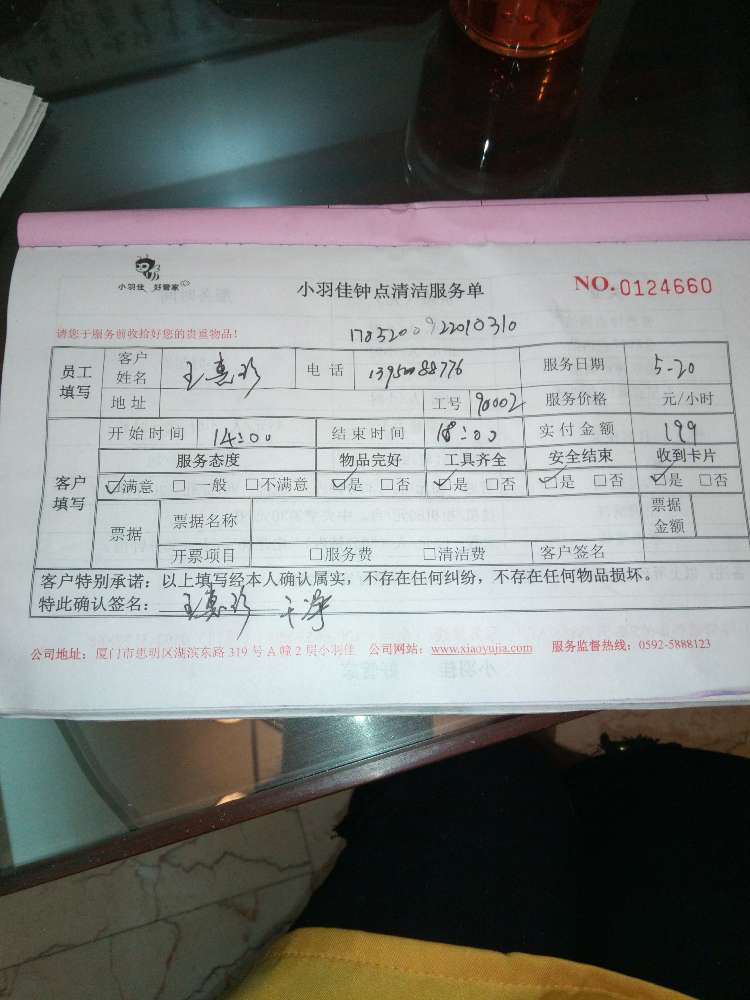 小羽佳 好管家
小羽佳钟点清洁服务单
NO.0124660
请您于服务前收拾好您的贵重物品！
1705200922010310
员工填写 客户姓名 王惠珍 电话 服务日期 5-20
地址 工号 90002 服务价格 元/小时
客户填写 开始时间 14:00 结束时间 18:00 实付金额 199
服务态度 物品完好 工具齐全 安全结束 收到卡片
☑满意 □一般 □不满意 ☑是 □否 ☑是 □否 ☑是 □否 ☑是 □否
票据 票据名称 票据金额
开票项目 □服务费 □清洁费 客户签名
客户特别承诺：以上填写经本人确认属实，不存在任何纠纷，不存在任何物品损坏。
特此确认签名：王惠珍 干净
公司地址：厦门市思明区湖滨东路 319 号 A 幢 2 层小羽佳 公司网站：www.xiaoyujia.com 服务监督热线：0592-5888123